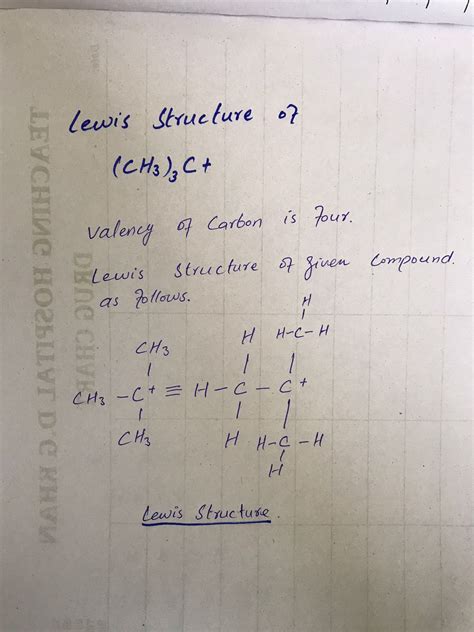 Lewis Structure of
(CH3)3C+
Valency of Carbon is Four.
Lewis Structure of given Compound.
as follows.
H
CH3 H H-C-H
CH3 -C+ ≡ H-C-C+
CH3 H H-C-H
H
Lewis Structure.
TEACHING HOSPITAL D.G KHAN
DRUG CHAR